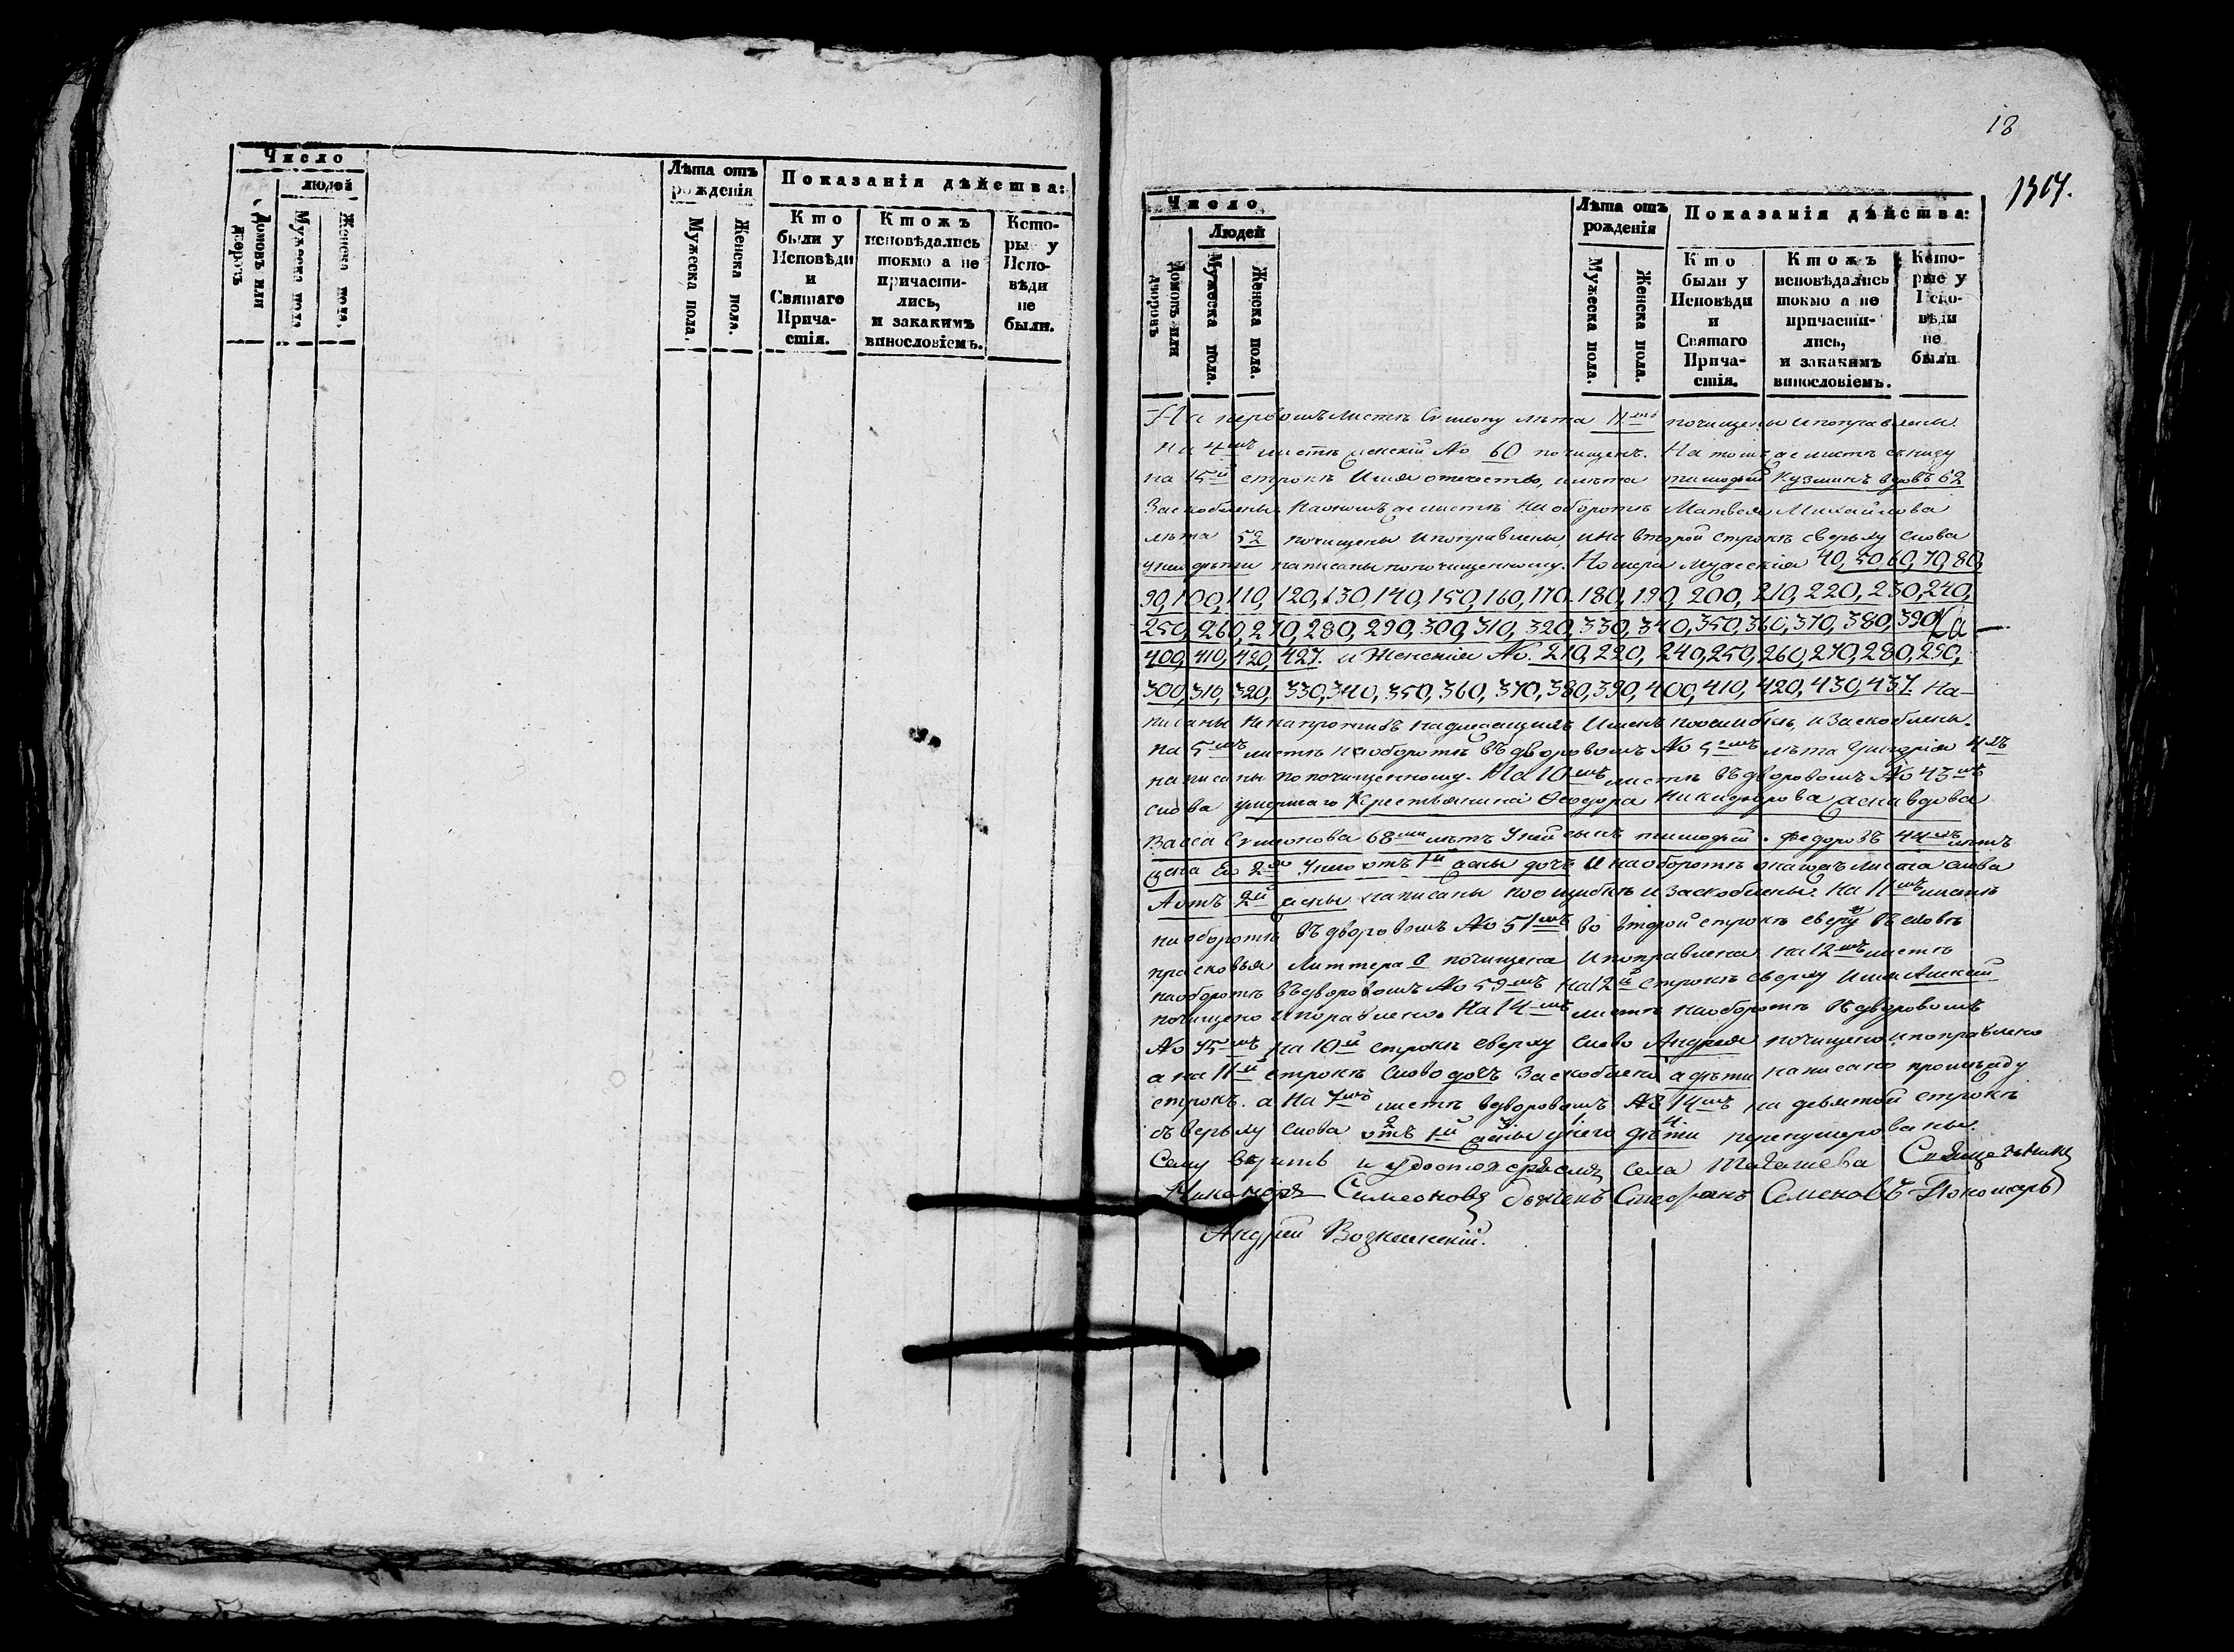 Число
людей
Домовъ или дворовъ
Мужеска пола.
Женска пола.
Лѣта отъ рожденія
Мужеска пола.
Женска пола.
Показанія дѣйства:
Кто были у Исповѣди и Святаго Прича-стія.
Ктожъ исповѣдались токмо а не причасти-лись, и закакимъ винословіемъ.
Кото-ры у Испо-вѣди не были.
18
1307.
Число
Людей
Домовъ или дворовъ
Мужеска пола.
Женска пола.
Лѣта отъ рожденія
Мужеска пола.
Женска пола.
Показанія дѣйства:
Кто были у Исповѣди и Святаго Прича-стія.
Ктожъ исповѣдались токмо а не причасти-лись, и закакимъ винословіемъ.
Кото-рые у Испо-вѣди не были
На первомъ листѣ Симеону лѣта 11 почищены и поправлены.
на 4мъ листѣ женскій No 60 почищенъ. На томъ же листѣ снизу
на 15й строкѣ Имя отечество, и лѣта тимофей Кузминъ вдовъ 62
Заскоблены. На ономъ же листѣ на оборотѣ Матвея Михайлова
лѣта 52 почищены и поправлены, и на второй строкѣ сверьху слова
у них дѣти написаны по почищенному. Номера мужескія 40, 50, 60, 70, 80,
90, 100, 110, 120, 130, 140, 150, 160, 170, 180, 190, 200, 210, 220, 230, 240,
250, 260, 270, 280, 290, 300, 310, 320, 330, 340, 350, 360, 370, 380, 390,
400, 410, 420, 427. и Женскія No. 210, 220, 240, 250, 260, 270, 280, 290,
300, 310, 320, 330, 340, 350, 360, 370, 380, 390, 400, 410, 420, 430, 437. На-
писаны не напротивъ надлежащихъ Именъ по ошибкѣ, и Заскоблены.
на 5мъ листѣ на оборотѣ въ дворовомъ No 5мъ лѣта
написаны по почищенному. На 10мъ листѣ въ дворовомъ No 43мъ
слова умершаго Крестьянина Феодора Никифорова жена вдова
Васса Симеонова 68 лѣтъ У ней сынъ тимофей Федоровъ 44 лѣтъ
жена Ево 2я У нево отъ 1й жены дочь И на оборотѣ онагожъ листа слова
А отъ 2й жены написаны по ошибкѣ и Заскоблены. На 11мъ листѣ
на оборотѣ въ дворовомъ No 51мъ во второй строкѣ сверху въ словѣ
прасковья Литтера почищена и поправлена на 12мъ листѣ
на оборотѣ въ дворовомъ No 59мъ на 12й строкѣ сверху имя Алексій
почищено и поправлено. На 14мъ листѣ на оборотѣ въ дворовомъ
No 75мъ на 10й строкѣ сверху слово Андрея почищено и поправлено
а на 11й строкѣ слово дочь Заскоблено а дѣти написано промежду
строкъ. а На 7мъ листѣ в дворовомъ No 14мъ на девятой строкѣ
съ верьху слова отъ 1й жены у него дѣти перенумерованы.
Священникъ
Симеоновъ Стефанъ Семеновъ Пономарь
Андрей Вознесенскій.